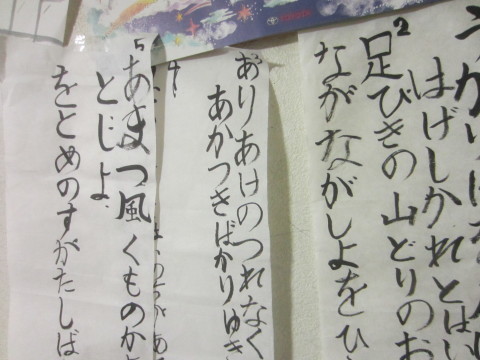 TOYOTA
はげしかれとは
2
足びきの山どりのお
ながながしよをひ
ありあけのつれなく
あかつきばかりゆき
5
あまつ風くものか
とじよ
をとめのすがたしば